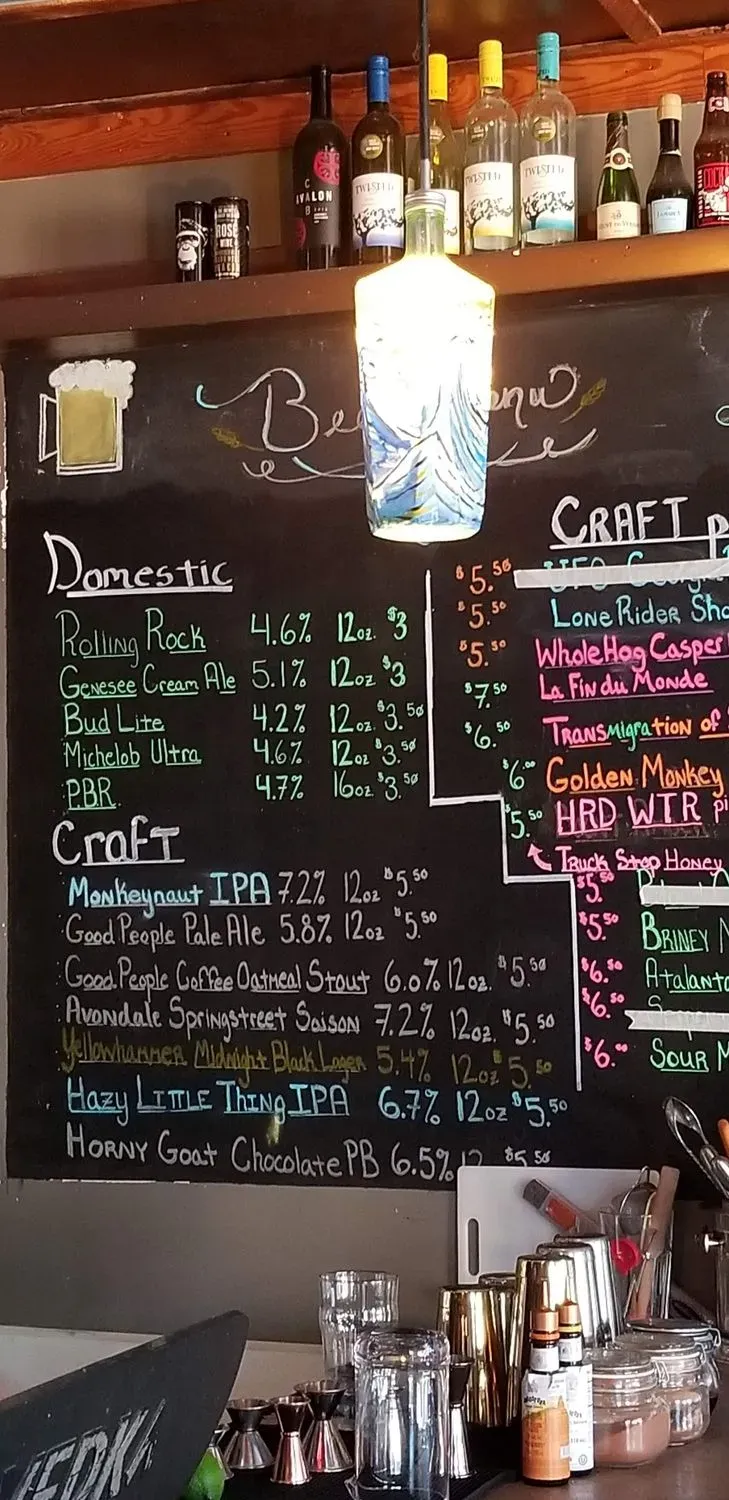 AVALON
TWISTED
TWISTED
TWISTED
ROSÉ
COCK
Domestic
Rolling Rock 4.6% 12oz. $3
Genesee Cream Ale 5.1% 12oz $3
Bud Lite 4.2% 12oz. $3.50
Michelob Ultra 4.6% 12oz $3.50
PBR 4.7% 16oz. $3.50
Craft
Monkeynaut IPA 7.2% 12oz $5.50
Good People Pale Ale 5.8% 12oz $5.50
Good People Coffee Oatmeal Stout 6.0% 12oz. $5.50
Avondale Springstreet Saison 7.2% 12oz. $5.50
Yellowhammer Midnight Black Lager 5.4% 12oz $5.50
Hazy Little Thing IPA 6.7% 12oz $5.50
Horny Goat Chocolate PB 6.5% 12 $5.50
CRAFT
$5.50
$5.50 Lone Rider
$5.50 Whole Hog Casper
$7.50 La Fin du Monde
$6.50 Transmigration of
$6.00 Golden Monkey
$5.50 HRD WTR
Truck Stop Honey
$5.50
$5.50 Briney
$6.50
$6.50
$6.00 Sour